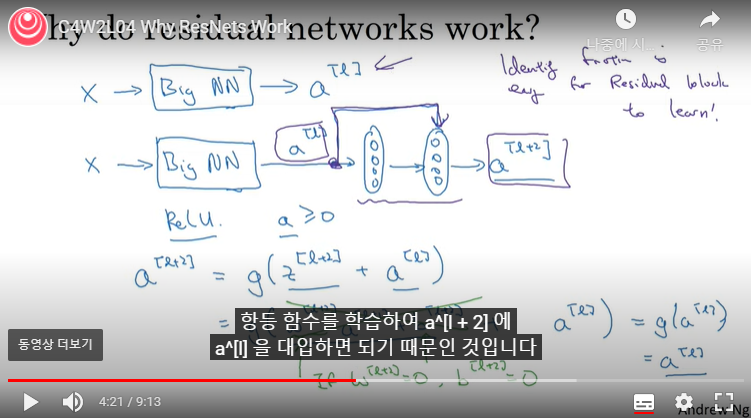 C4W2L04 Why ResNets Work
Why do residual networks work?
나중에 시...
공유
X → Big NN → a^[l]
Identity function is
easy for Residual block
to learn!
X → Big NN
a^[l]
a^[l+2]
ReLU. a ≥ 0
a^[l+2] = g(z^[l+2] + a^[l])
a^[l]) = g(a^[l])
= a^[l]
항등 함수를 학습하여 a^[l + 2] 에
a^[l] 을 대입하면 되기 때문인 것입니다
동영상 더보기
If W^[l+2]=0, b^[l+2]=0
4:21 / 9:13
Andrew Ng